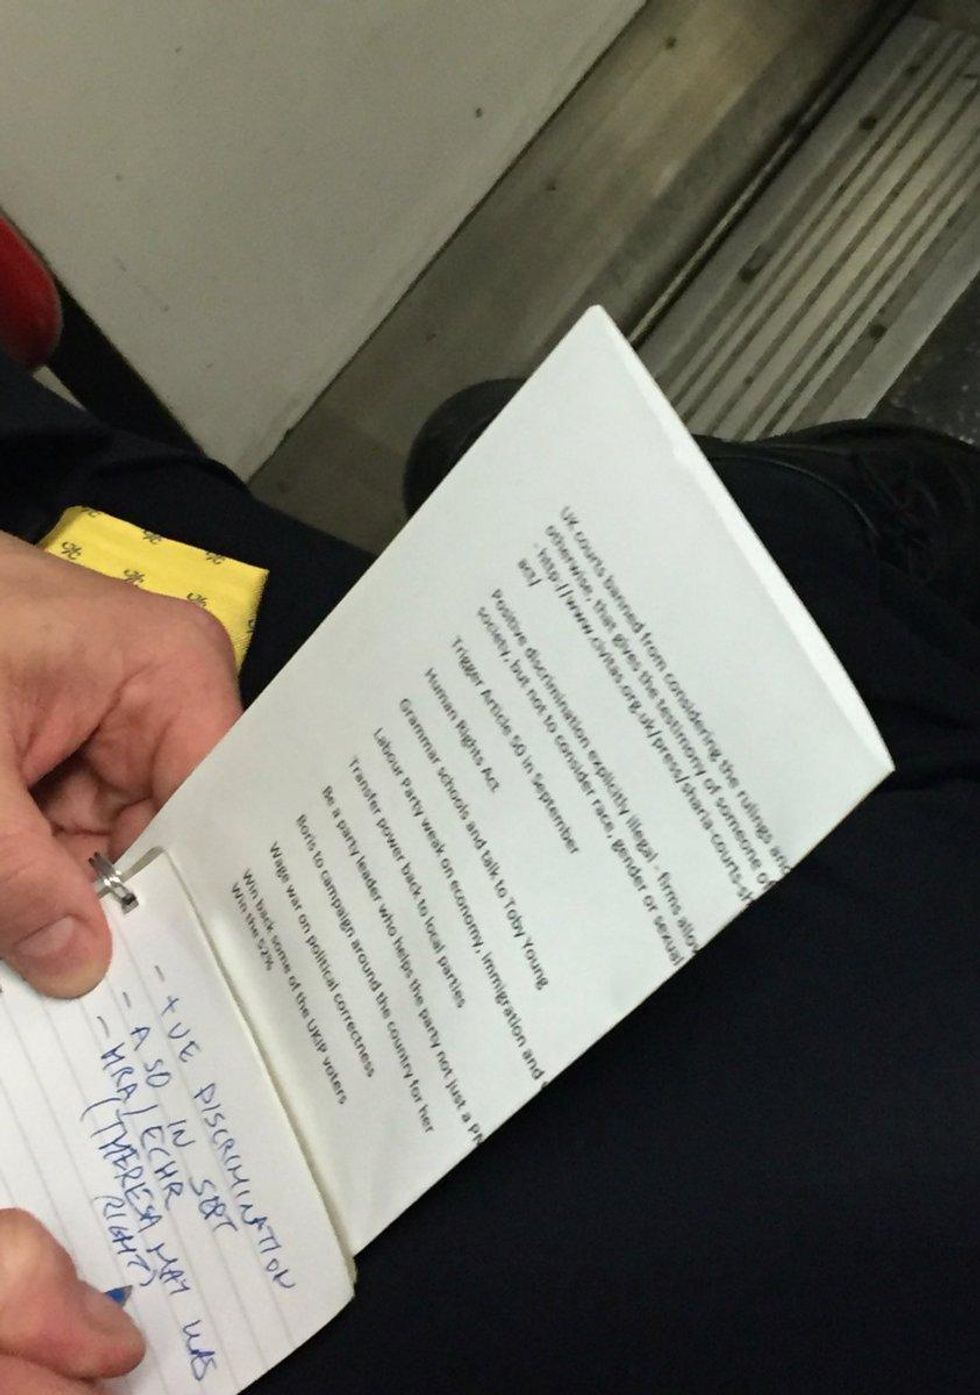 UK courts banned from considering the rulings and
otherwise, that gives the testimony of someone of
- http://www.civitas.org.uk/press/sharia-courts-sh
act/
Positive discrimination explicitly illegal - firms allow
society, but not to consider race, gender or sexual
Trigger Article 50 in September
Human Rights Act
Grammar schools and talk to Toby Young
Labour Party weak on economy, immigration and
Transfer power back to local parties
Be a party leader who helps the party not just a PM
Boris to campaign around the country for her
Wage war on political correctness
Win back some of the UKIP voters
Win the 52%
- +VE DISCRIMINATION
- A 50 IN SEPT
- HRA/ECHR
(THERESA MAY WAS
RIGHT)